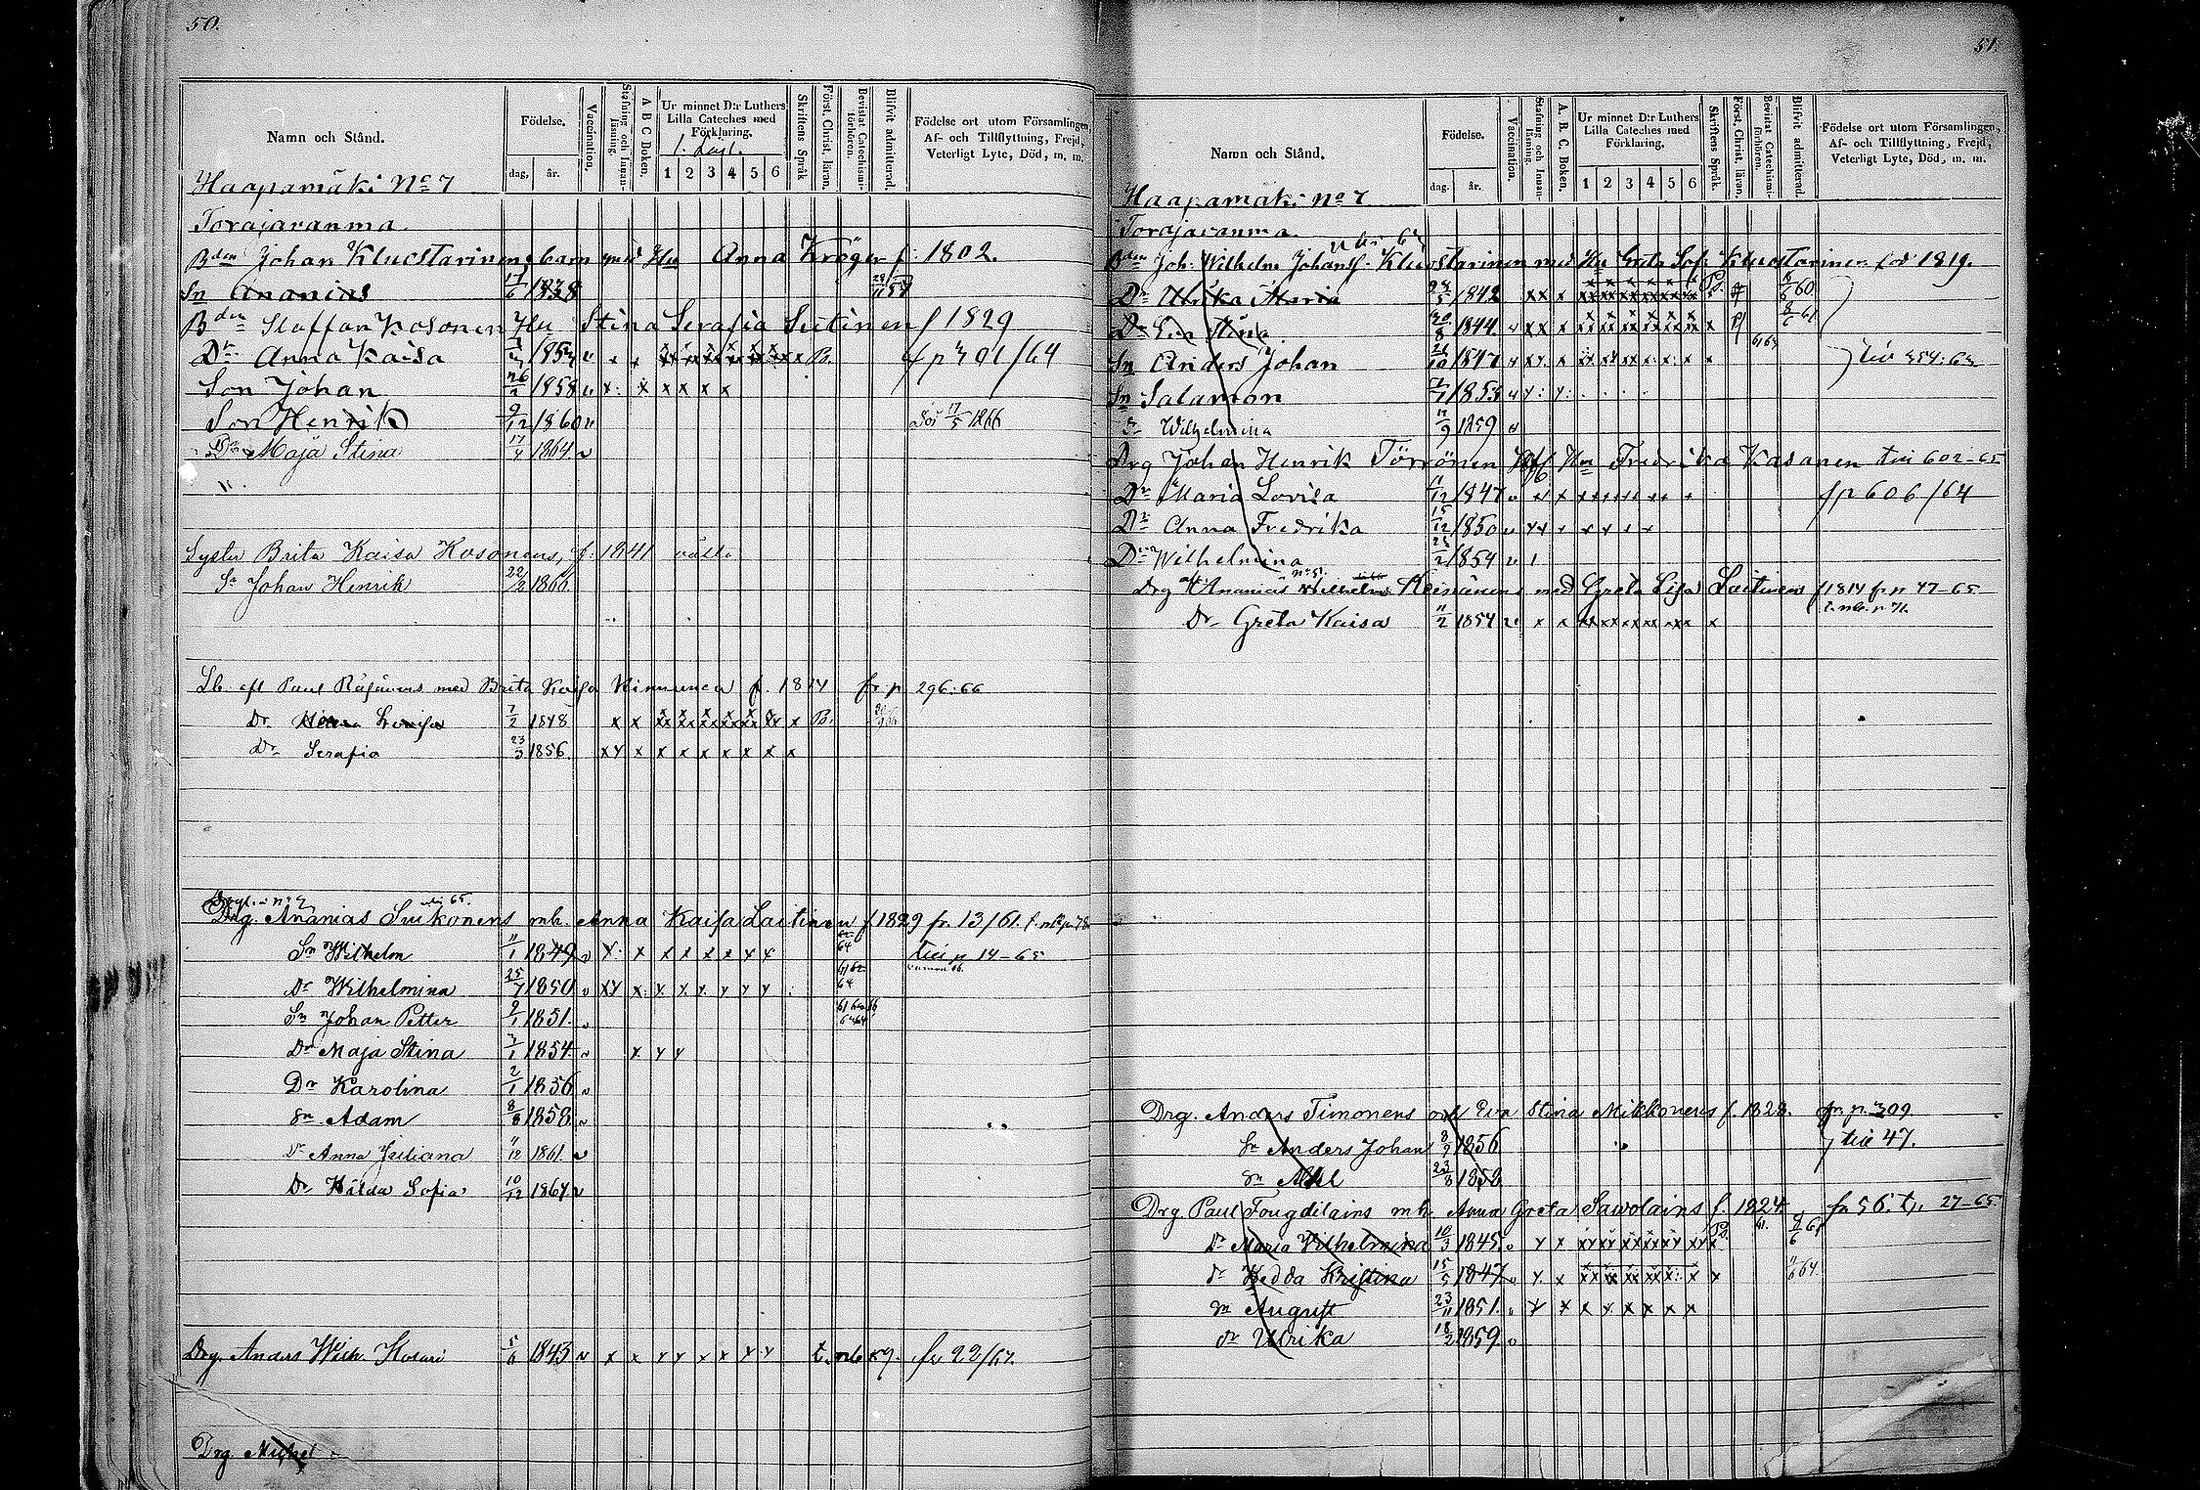 50.
Namn och Stånd.
Födelse.
dag, år.
Vaccination.
Stafning och Innanläsning.
A B C Boken.
Ur minnet D:r Luthers Lilla Cateches med Förklaring.
1 2 3 4 5 6
Skriftens Språk
Först. Christ. läran.
Bevistat Catechismiförhören.
Blifvit admitterad.
Födelse ort utom Församlingen, Af- och Tillflyttning, Frejd, Veterligt Lyte, Död, m. m.
Haapamäki No 7
Torajaranma
Bden Johan Kluustarinens barn med Hu Anna Kröger f: 1802.
Sn Ananias 17/6 1838
Bden Staffan Kosonen Hu Stina Serafia Sutinen f 1829
Dr Anna Kaisa 1853 x x B. fp 401/64
Son Johan 26/2 1858 x x x x x x
Son Henrik 9/12 1860 Död 17/5 1866
Dr Maja Stina 17/4 1864
Syster Brita Kaisa Kosonens, f: 1841
Sn Johan Henrik 22/2 1866
Lb. afl Paul Räisänens med Brita Kaisa Kinnunen f. 1814 fr p 296:66
Dr Lovisa 7/2 1848 x x B.
Dr Serafia 23/3 1856 x x x x x x x x x x
Drg. Ananias Snikonens mh. Anna Kaisa Laitinen f 1829 fr. 13/61.
Sn Wilhelm 11/1 1849 x x x x x x x x 64 till p 14-65
Dr Wilhelmina 25/7 1850 x x x x x x x x x 64
Sn Johan Petter 9/1 1851
Dr Maja Stina 1854 x x x
Dr Karolina 2/1 1856
Sn Adam 8/8 1858
Dr Anna Juliana 11/12 1861
Dr Hilda Sofia 10/12 1864
Drg. Anders Wilh. Kosuri 5/6 1843 x x x x x x x x fr 22/67.
Drg. Michel
51.
Namn och Stånd.
Födelse.
dag. år.
Vaccination.
Stafning och Innanläsning.
A. B. C. Boken.
Ur minnet D:r Luthers Lilla Cateches med Förklaring.
1 2 3 4 5 6
Skriftens Språk.
Först. Christ. läran.
Bevistat Catechismiförhören.
Blifvit admitterad.
Födelse ort utom Församlingen, Af- och Tillflyttning, Frejd, Veterligt Lyte, Död, m. m.
Haapamäki No 7
Torajaranma
Bden Joh: Wilhelm Johanss. Kluustarinen med Hu Greta Sofi Kluustarinen född 1819.
Dr Ulrika Maria 1842 60
Dr Eva Stina 1844 61
Sn Anders Johan 1847
Sn Salamon 1853
Dr Wilhelmina 1859
Drg Johan Henrik Törrönen Hu Fredrika Kasanen till 602-65
Dr Maria Lovisa 1847 fp 606/64
Dr Anna Fredrika 15/12 1850
Dr Wilhelmina 1854
Drg Ananias Wilhelms Keisänens med Greta Lisa Laitinens f 1814 fr p 47-65
Dr Greta Kaisa 11/2 1854
Drg. Anders Timonens Eva Stina Mikkonens f. 1823. fr. p. 309
Sn Anders Johan 8/9 1856 till 47.
Sn Abel 23/8 1858
Drg. Paul Fougdilains mh. Anna Greta Sawolains f. 1824 fr 56. t p. 27-65
Dr Maria Wilhelmina 10/3 1845
dr Hedda Kristina 15/5 1847 64
Sn August 23/11 1851
dr Ulrika 18/2 1859